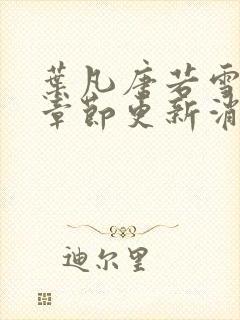 葉凡唐若雪
章節更新消
迪尔里